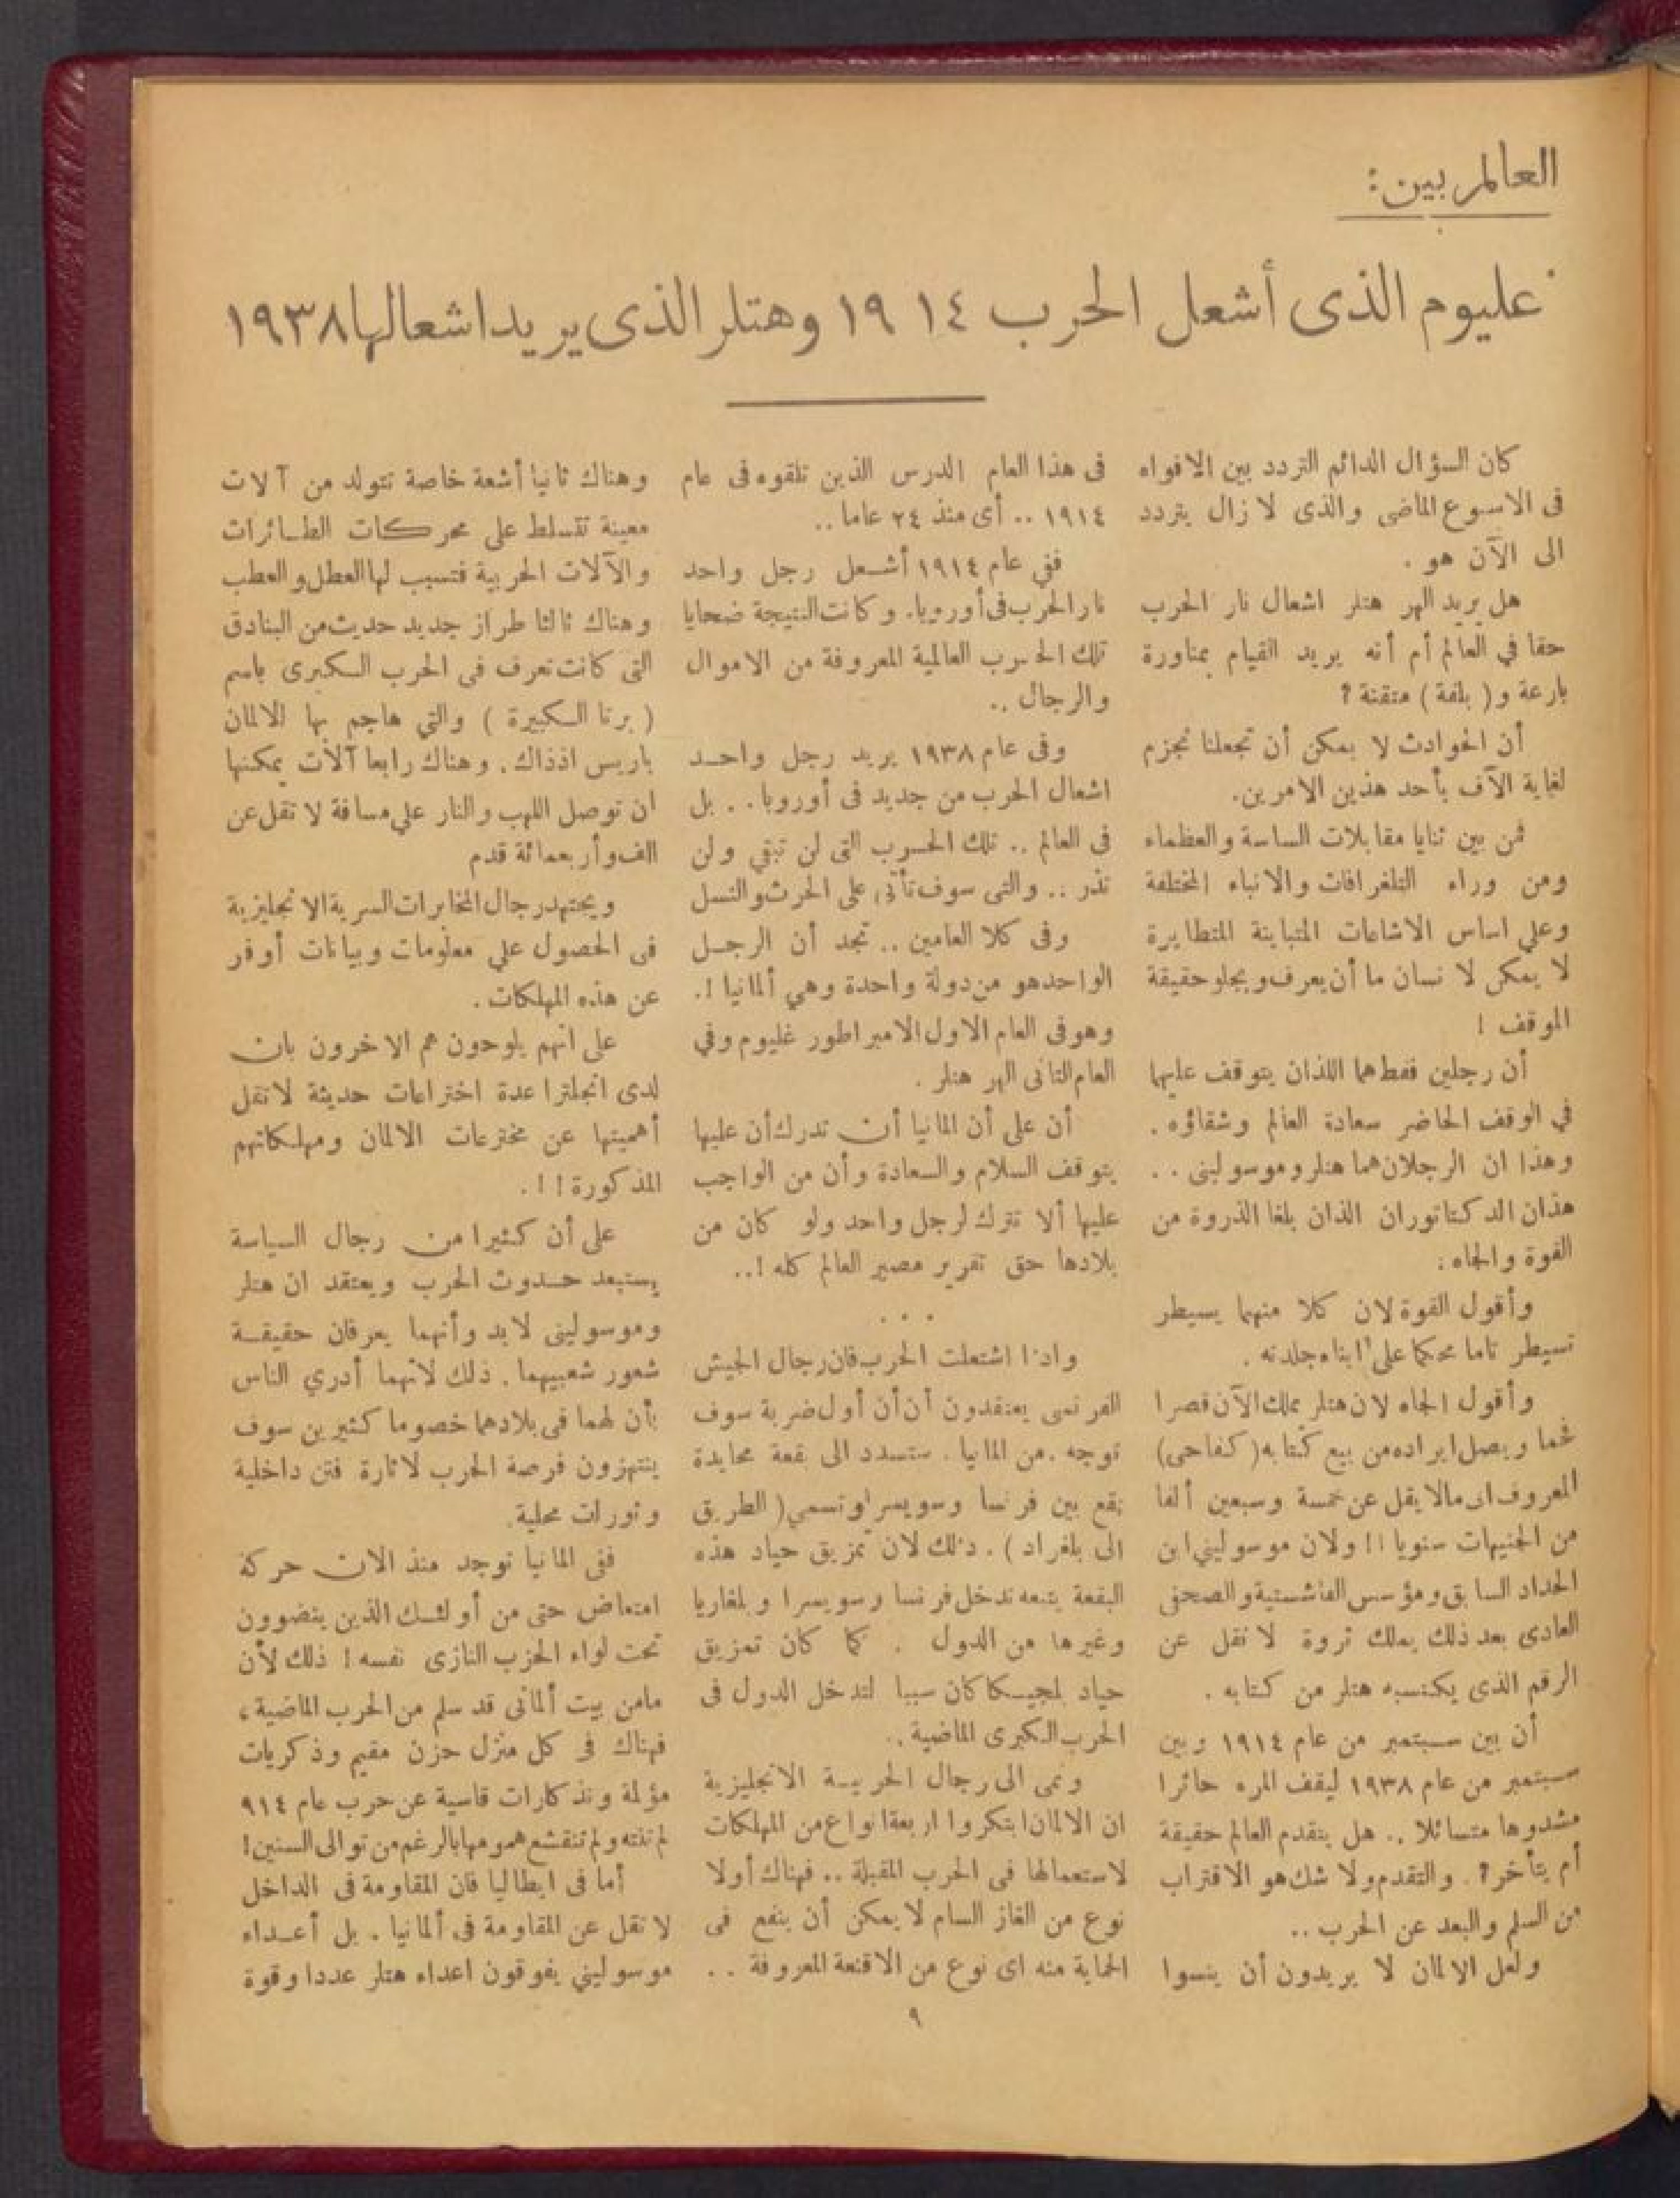 العالم بين:
غليوم الذى أشعل الحرب ١٩١٤ وهتلر الذى يريد اشعالها ١٩٣٨
كان السؤال الدائم التردد بين الافواه
فى الاسبوع الماضى والذى لا زال يتردد
الى الآن هو .
هل يريد الهر هتلر اشعال نار الحرب
حقا في العالم أم أنه يريد القيام بمناورة
بارعة و ( بلفة ) متقنة ؟
أن الحوادث لا يمكن أن تجعلنا نجزم
لغاية الآن بأحد هذين الامرين.
فمن بين ثنايا مقابلات الساسة والعظماء
ومن وراء التلغرافات والانباء المختلفة
وعلي اساس الاشاعات المتباينة المتطايرة
لا يمكن لا نسان ما أن يعرف ويجلو حقيقة
الموقف !
أن رجلين فقط هما اللذان يتوقف عليهما
في الوقف الحاضر سعادة العالم وشقاؤه .
وهذا ان الرجلان هما هتلر وموسولينى . .
هذان الدكتاتوران الذان بلغا الذروة من
القوة والجاه :
وأقول القوة لان كلا منهما يسيطر
تسيطر تاما محكما على ابناء جلدته .
وأقول الجاه لان هتلر يملك الآن قصرا
فخما ويصل ايراده من بيع كتابه ( كفاحى )
المعروف الى مالا يقل عن خمسة وسبعين ألفا
من الجنيهات سنويا !! ولان موسوليني ابن
الحداد السابق ومؤسس الفاشستية والصحفى
العادى بعد ذلك يملك ثروة لا تقل عن
الرقم الذى يكتسبه هتلر من كتابه .
أن بين سبتمبر من عام ١٩١٤ وبين
سبتمبر من عام ١٩٣٨ ليقف المرء حائرا
مشدوها متسائلا .. هل يتقدم العالم حقيقة
أم يتأخر ؟ . والتقدم ولا شك هو الاقتراب
من السلم والبعد عن الحرب ..
ولعل الالمان لا يريدون أن ينسوا
فى هذا العام الدرس الذين تلقوه فى عام
١٩١٤ .. أى منذ ٢٤ عاما ..
ففي عام ١٩١٤ أشعل رجل واحد
نار الحرب فى أوروبا. وكانت النتيجة ضحايا
تلك الحرب العالمية المعروفة من الاموال
والرجال ..
وفى عام ١٩٣٨ يريد رجل واحد
اشعال الحرب من جديد فى أوروبا . . بل
فى العالم .. تلك الحرب التى لن تبقي ولن
تذر .. والتى سوف تأتى على الحرث والنسل
وفى كلا العامين .. تجد أن الرجل
الواحد هو من دولة واحدة وهي ألمانيا !.
وهو فى العام الاول الامبراطور غليوم وفي
العام الثانى الهر هتلر .
أن على أن المانيا أن تدرك أن عليها
يتوقف السلام والسعادة وأن من الواجب
عليها ألا تترك لرجل واحد ولو كان من
بلادها حق تقرير مصير العالم كله ! ..
. . .
واذا اشتعلت الحرب فان رجال الجيش
الفرنسى يعتقدون أن أن أول ضربة سوف
توجه . من المانيا . ستسدد الى بقعة محايدة
يقع بين فرنسا وسويسرا وتسمي ( الطريق
الى بلغراد ) . ذلك لان تمزيق حياد هذه
البقعة يتبعه تدخل فرنسا وسويسرا وبلغاريا
وغيرها من الدول . كما كان تمزيق
حياد بلجيسكا كان سببا لتدخل الدول فى
الحرب الكبرى الماضية ..
ونمى الى رجال الحربية الانجليزية
ان الالمان ابتكروا اربعة انواع من المهلكات
لاستعمالها فى الحرب المقبلة .. فهناك أولا
نوع من الغاز السام لا يمكن أن ينفع فى
الحماية منه اى نوع من الاقنعة المعروفة . .
وهناك ثانيا أشعة خاصة تتولد من آلات
معينة تتسلط على محركات الطائرات
والآلات الحربية فتسبب لها العطل والعطب
وهناك ثالثا طراز جديد حديث من البنادق
التى كانت تعرف فى الحرب السكبرى باسم
( برتا السكبيرة ) والتي هاجم بها للالمان
باريس اذذاك . وهناك رابعا آلات يمكنها
ان توصل اللهب والنار علي مسافة لا تقل عن
الف وأربعمائة قدم
ويجتهد رجال المخابرات السرية الانجليزية
فى الحصول علي معلومات وبيانات أوفر
عن هذه المهلكات .
على انهم يلوحون هم الاخرون بان
لدى انجلترا عدة اختراعات حديثة لا تقل
أهميتها عن مخترعات الالمان ومهلكاتهم
المذكورة ! ! .
على أن كثيرا من رجال السياسة
يستبعد حدوث الحرب ويعتقد ان هتلر
وموسولينى لابد وأنهما يعرفان حقيقة
شعور شعبيهما . ذلك لانهما أدري الناس
بأن لهما فى بلادهما خصوما كثيرين سوف
ينتهزون فرصة الحرب لاثارة فتن داخلية
وثورات محلية.
ففى المانيا توجد منذ الان حركة
امتعاض حتى من أولئك الذين ينضوون
تحت لواء الحزب النازى نفسه ! ذلك لأن
مامن بيت ألمانى قد سلم من الحرب الماضية ،
فهناك فى كل منزل حزن مقيم وذكريات
مؤلمة وتذكارات قاسية عن حرب عام ٩١٤
لم تنته ولم تنقشع همومها بالرغم من توالى السنين !
أما فى ايطاليا فان المقاومة فى الداخل
لا تقل عن المقاومة فى ألمانيا . بل أعداء
موسوليني يفوقون اعداء هتلر عددا وقوة
٩